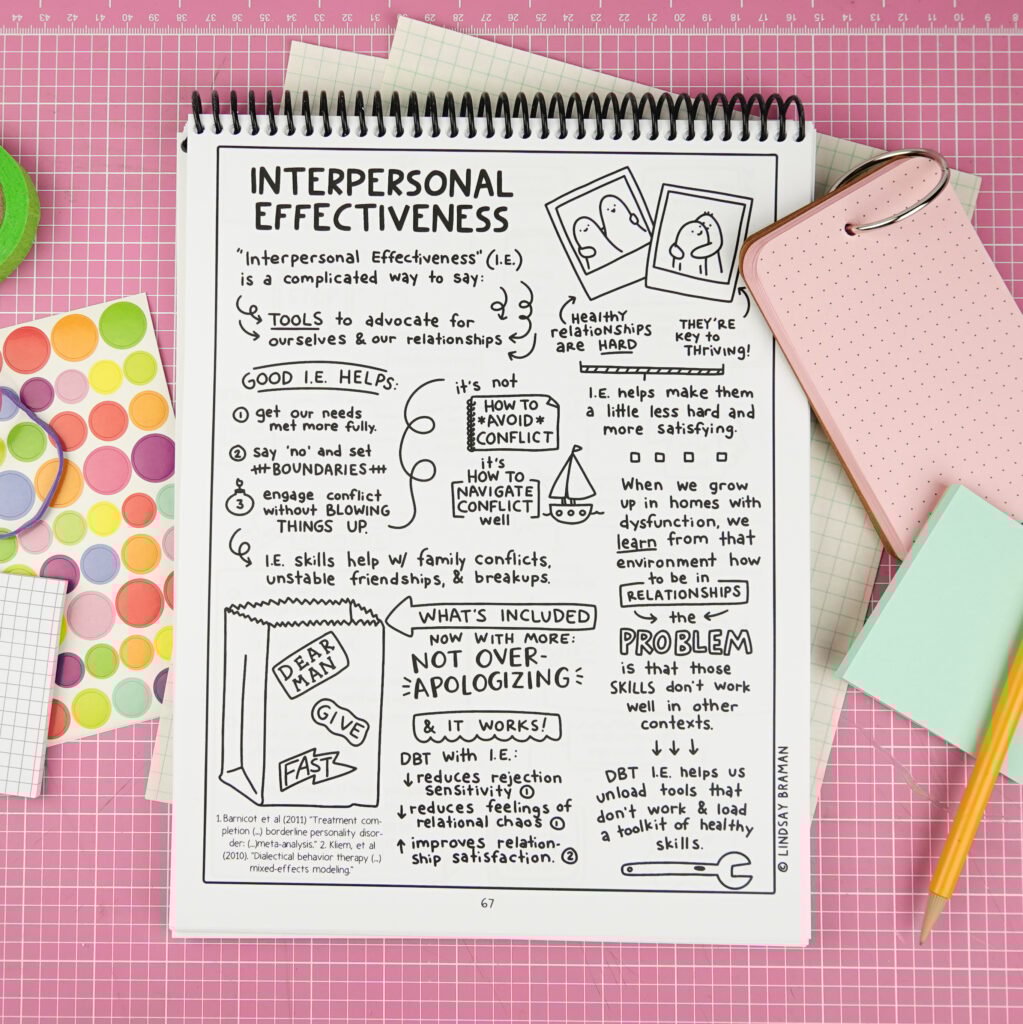 INTERPERSONAL
EFFECTIVENESS
"Interpersonal Effectiveness" (I.E.)
is a complicated way to say:
TOOLS to advocate for
ourselves & our relationships
HEALTHY
relationships
are HARD
THEY'RE
key to
THRIVING!
GOOD I.E. HELPS:
1 get our needs
met more fully.
2 say 'no' and set
BOUNDARIES
3 engage conflict
without BLOWING
THINGS UP.
it's not
HOW TO
*AVOID*
CONFLICT
it's
HOW TO
NAVIGATE
CONFLICT
well
I.E. skills help w/ family conflicts,
unstable friendships, & breakups.
I.E. helps make them
a little less hard and
more satisfying.
When we grow
up in homes with
dysfunction, we
learn from that
environment how
to be in
RELATIONSHIPS
the
PROBLEM
is that those
SKILLS don't work
well in other
contexts.
DBT I.E. helps us
unload tools that
don't work & load
a toolkit of healthy
skills.
WHAT'S INCLUDED
NOW WITH MORE:
NOT OVER-
APOLOGIZING
DEAR
MAN
GIVE
FAST
& IT WORKS!
DBT with I.E.:
↓ reduces rejection
sensitivity 1
↓ reduces feelings of
relational chaos 1
↑ improves relation-
ship satisfaction. 2
1. Barnicot et al (2011) "Treatment com-
pletion (...) borderline personality disor-
der: (...)meta-analysis." 2. Kliem, et al
(2010). "Dialectical behavior therapy (...)
mixed-effects modeling."
© LINDSAY BRAMAN
67